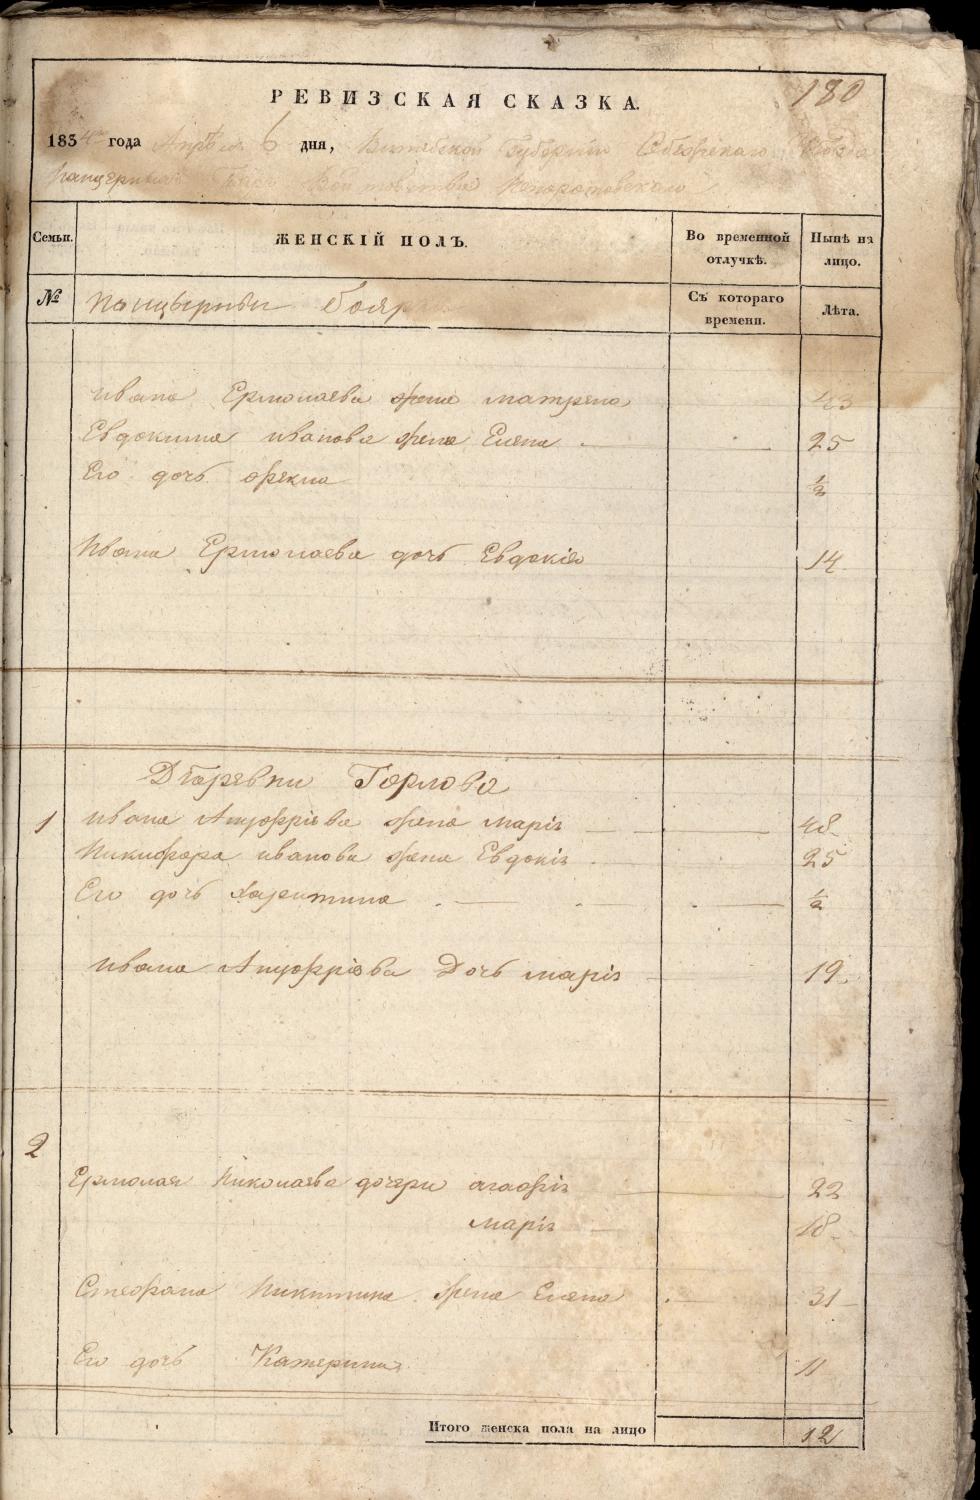 180
РЕВИЗСКАЯ СКАЗКА.
1834 года Апреля 6 дня, Витебской Губернии Себежскаго
Панцерныхъ
Семьи. ЖЕНСКІЙ ПОЛЪ. Во временной отлучкѣ. Нынѣ на лицо.
№ Панцырныи бояр Съ котораго времени. Лѣта.
Ивана Ермолаева жена матрена 43
Евдокима иванова жена Елена 25
Его дочь Фекла ½
Ивана Ермолаева дочь Евдокія 14
Деревни Горлова
1 Ивана Ануфріева жена Маріѣ 48
Никифора иванова жена Евдокіѣ 25
Его дочь Харитина ½
Ивана Ануфріева Дочь маріѣ 19
2
Ермолая Николаева дочери агафіѣ 22
маріѣ 18
Стефана Никитина жена Елена 31
Его дочь Катерина 11
Итого женска пола на лицо 12